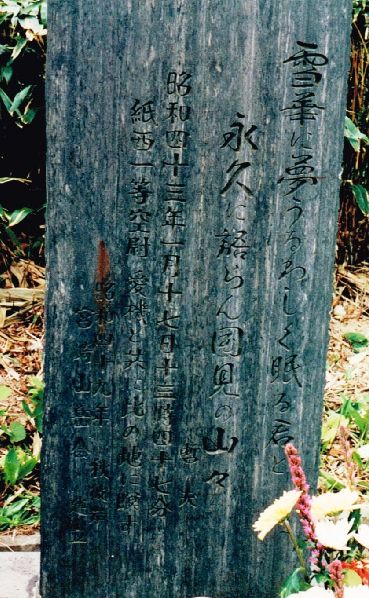 雪華に夢うるわしく眠る君と
永久に語らん国見の山々
昭和四十三年一月十七日十三時四十七分
紙西一等空尉愛機と共に此の地に眠す
昭和四十九年
山岳会